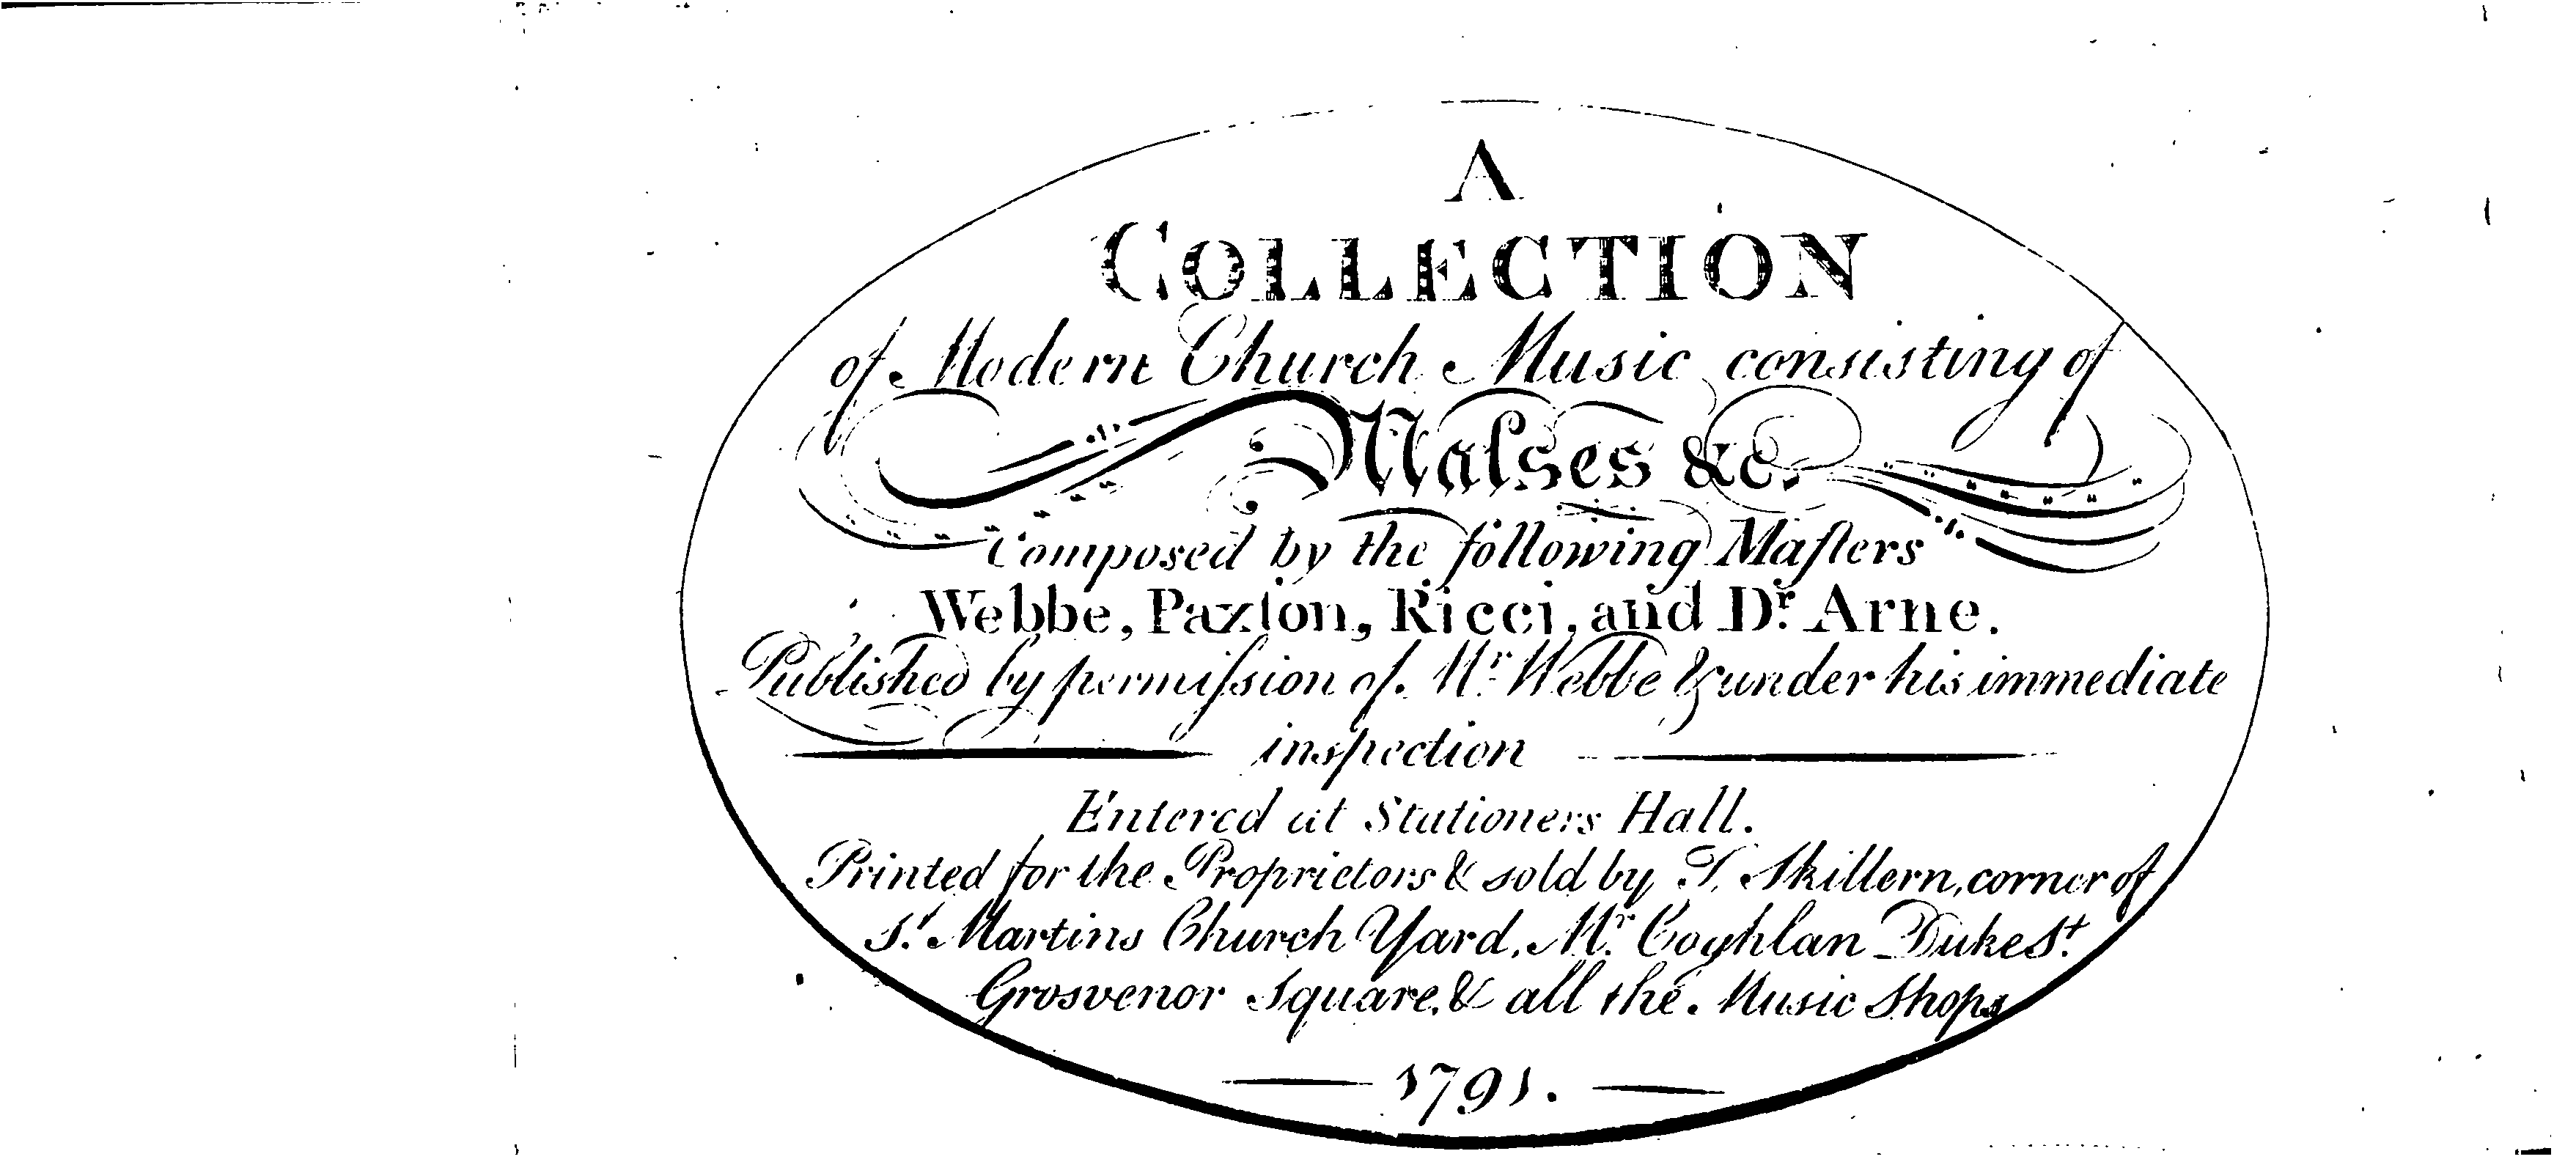 A
COLLECTION
of Modern Church Music consisting of
Maſses &c.
Composed by the following Maſters
Webbe, Paxton, Ricci, and Dr. Arne.
Published by permiſsion of Mr. Webbe & under his immediate
inspection
Entered at Stationers Hall.
Printed for the Proprietors & sold by T. Skillern, corner of
St. Martins Church Yard, Mr. Coghlan Duke St.
Grosvenor Square, & all the Music Shops
1791.